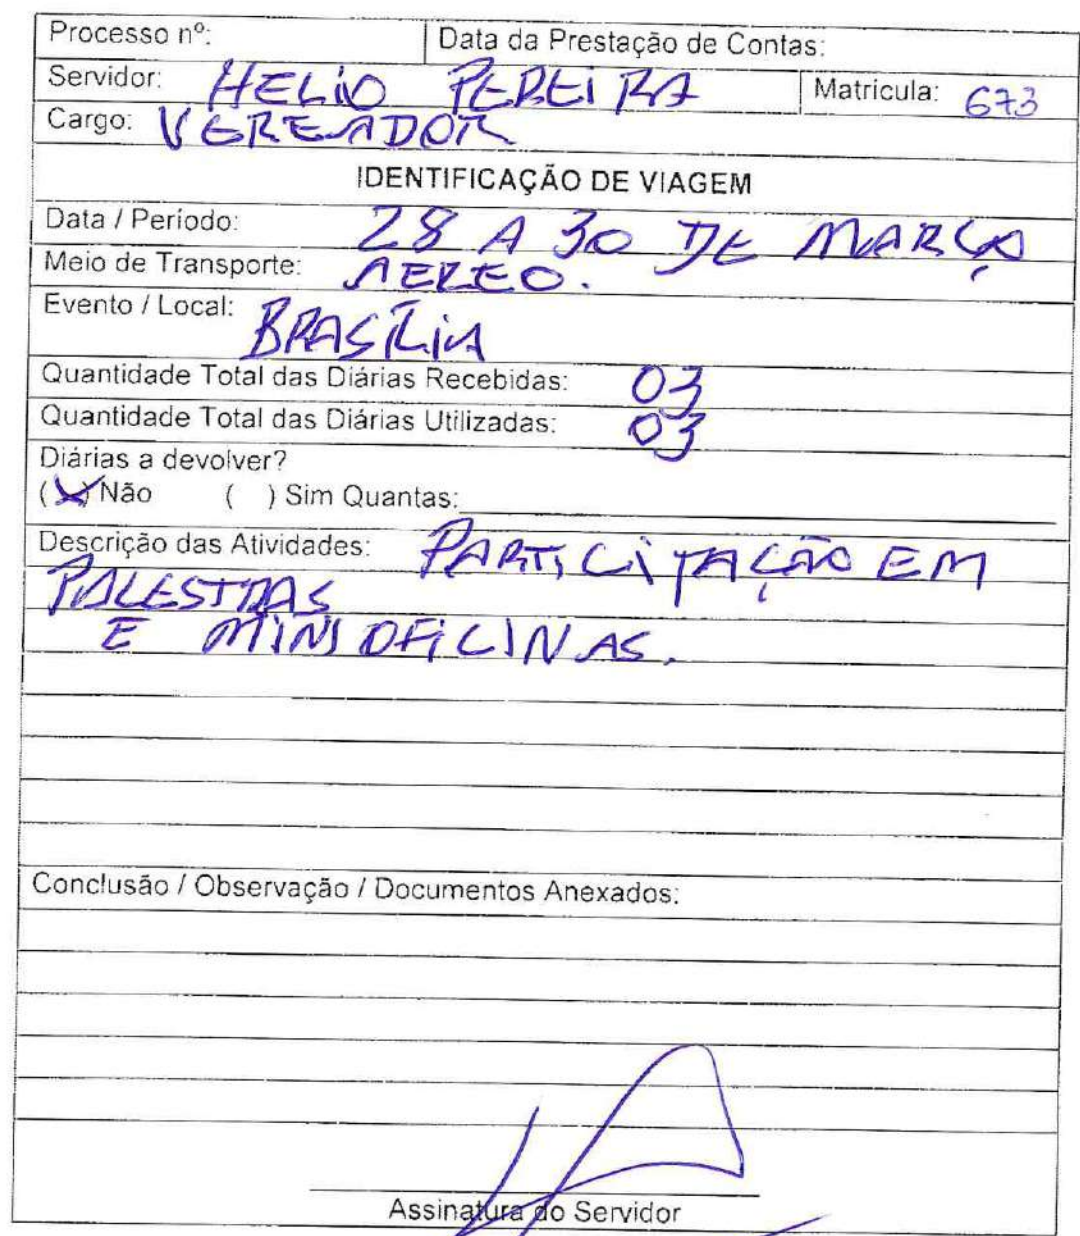 Processo nº: Data da Prestação de Contas:
Servidor: HELIO PEREIRA Matricula: 673
Cargo: VEREADOR
IDENTIFICAÇÃO DE VIAGEM
Data / Período: 28 A 30 DE MARÇO
Meio de Transporte: AEREO.
Evento / Local: BRASÍLIA
Quantidade Total das Diárias Recebidas: 03
Quantidade Total das Diárias Utilizadas: 03
Diárias a devolver?
(X) Não ( ) Sim Quantas:
Descrição das Atividades: PARTICIPAÇÃO EM
PALESTRAS
E MINI OFICINAS.
Conclusão / Observação / Documentos Anexados:
Assinatura do Servidor